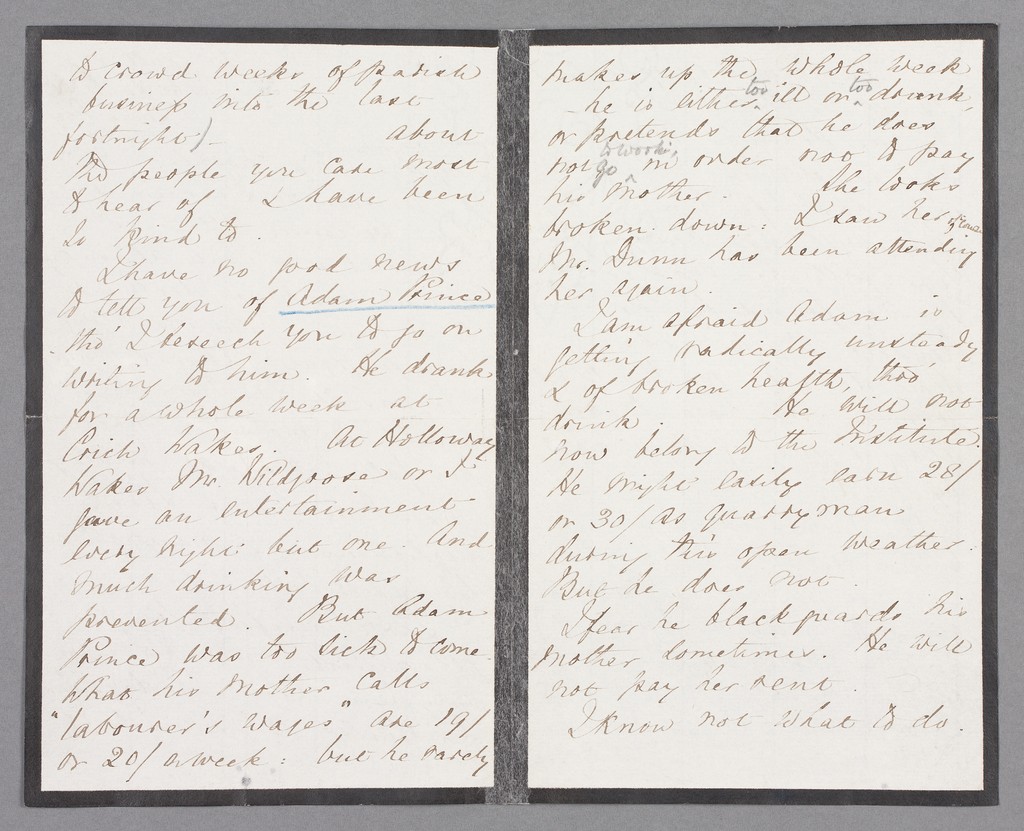 to crowd weeks of parish
business into the last
fortnight) - about
the people you care most
to hear of & have been
so kind to.
I have no good news
to tell you of Adam Prince
tho' I beseech you to go on
writing to him. He drank
for a whole week at
Crich Wakes. At Holloway
Wakes Mr. Wildgoose or I
gave an entertainment
every night but one. And
much drinking was
prevented. But Adam
Prince was too sick to come.
What his mother calls
"labourer's wages" are 19/
or 20/ a week: but he rarely
makes up the whole week
- he is either too ill or too drunk,
or pretends that he does
not go to work, in order not to pay
his mother. She looks
broken down: I saw her
Mr. Dunn has been attending
her again.
I am afraid Adam is
getting radically unsteady
& of broken health, thro'
drink. He will not
now belong to the Institute.
He might easily earn 28/
or 30/ as quarryman
during this open weather.
But he does not.
I fear he blackguards his
mother sometimes. He will
not pay her rent.
I know not what to do.